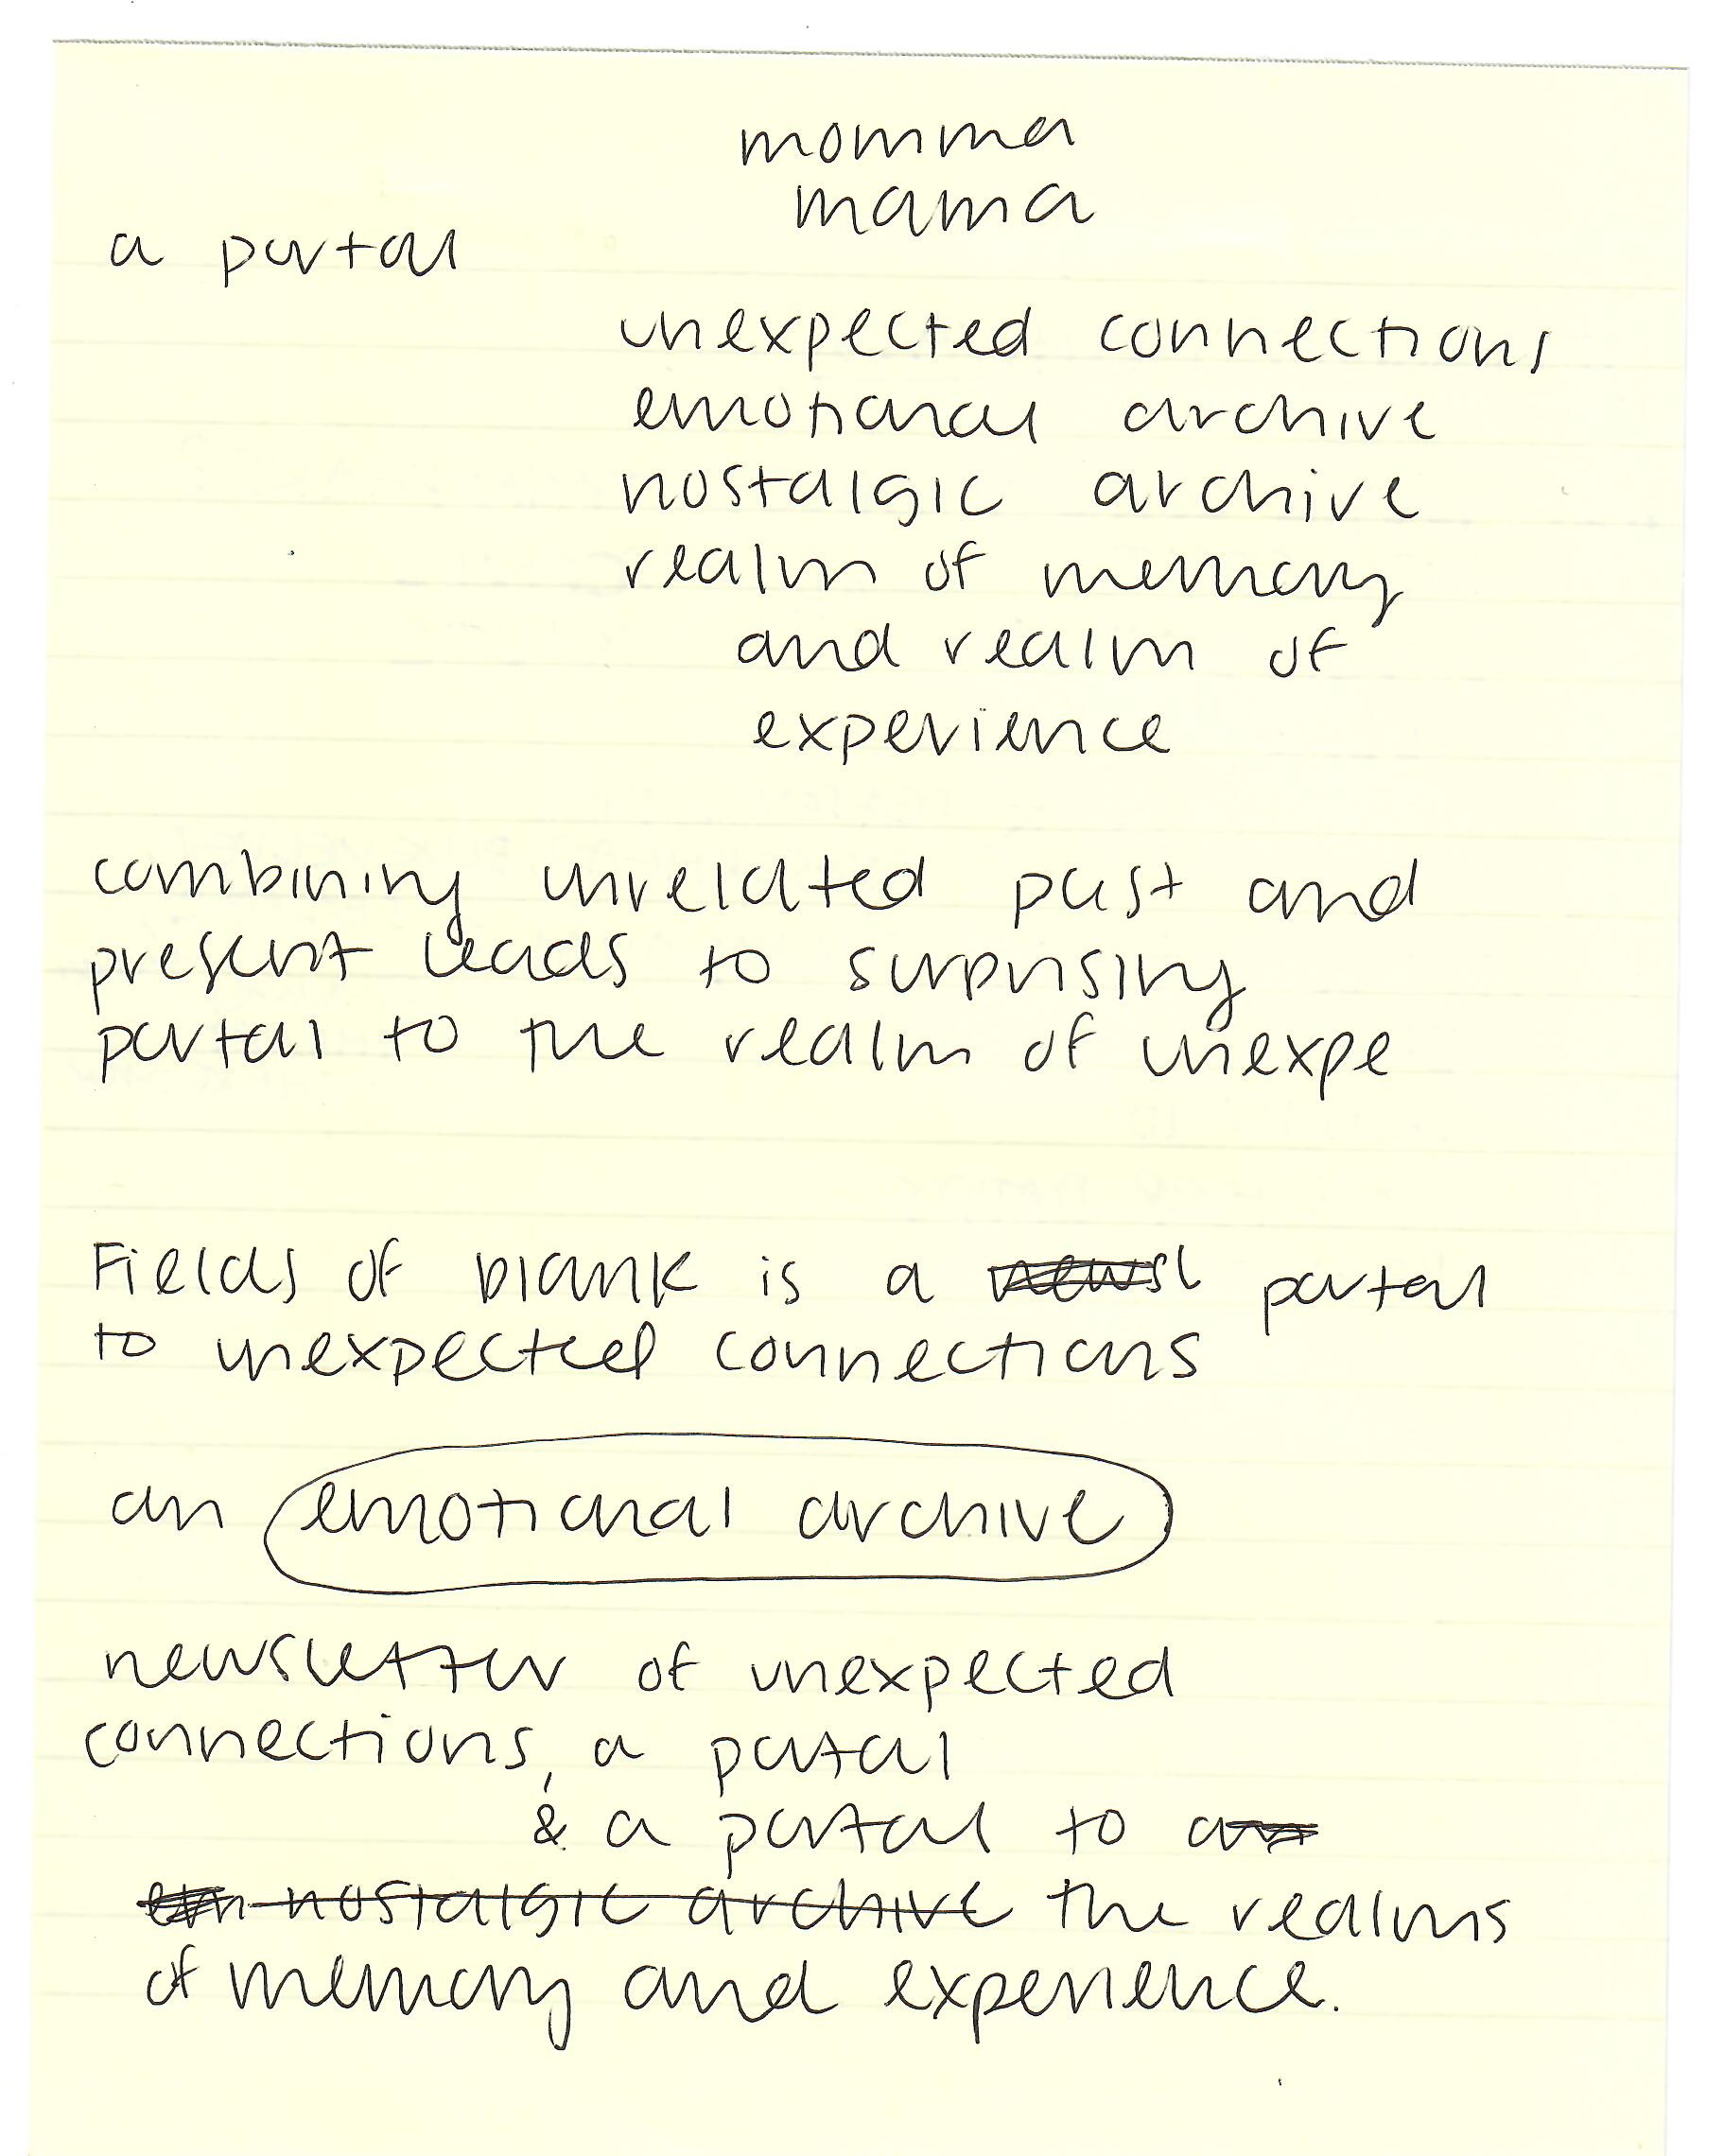 momma
mama
a portal
unexpected connections
emotional archive
nostalgic archive
realm of memory
and realm of
experience
combining unrelated past and
present leads to surprising
portal to the realm of unexpe
Fields of blank is a newsl portal
to unexpected connections
an emotional archive
newsletter of unexpected
connections, a portal
& a portal to an
em nostalgic archive the realms
of memory and experience.